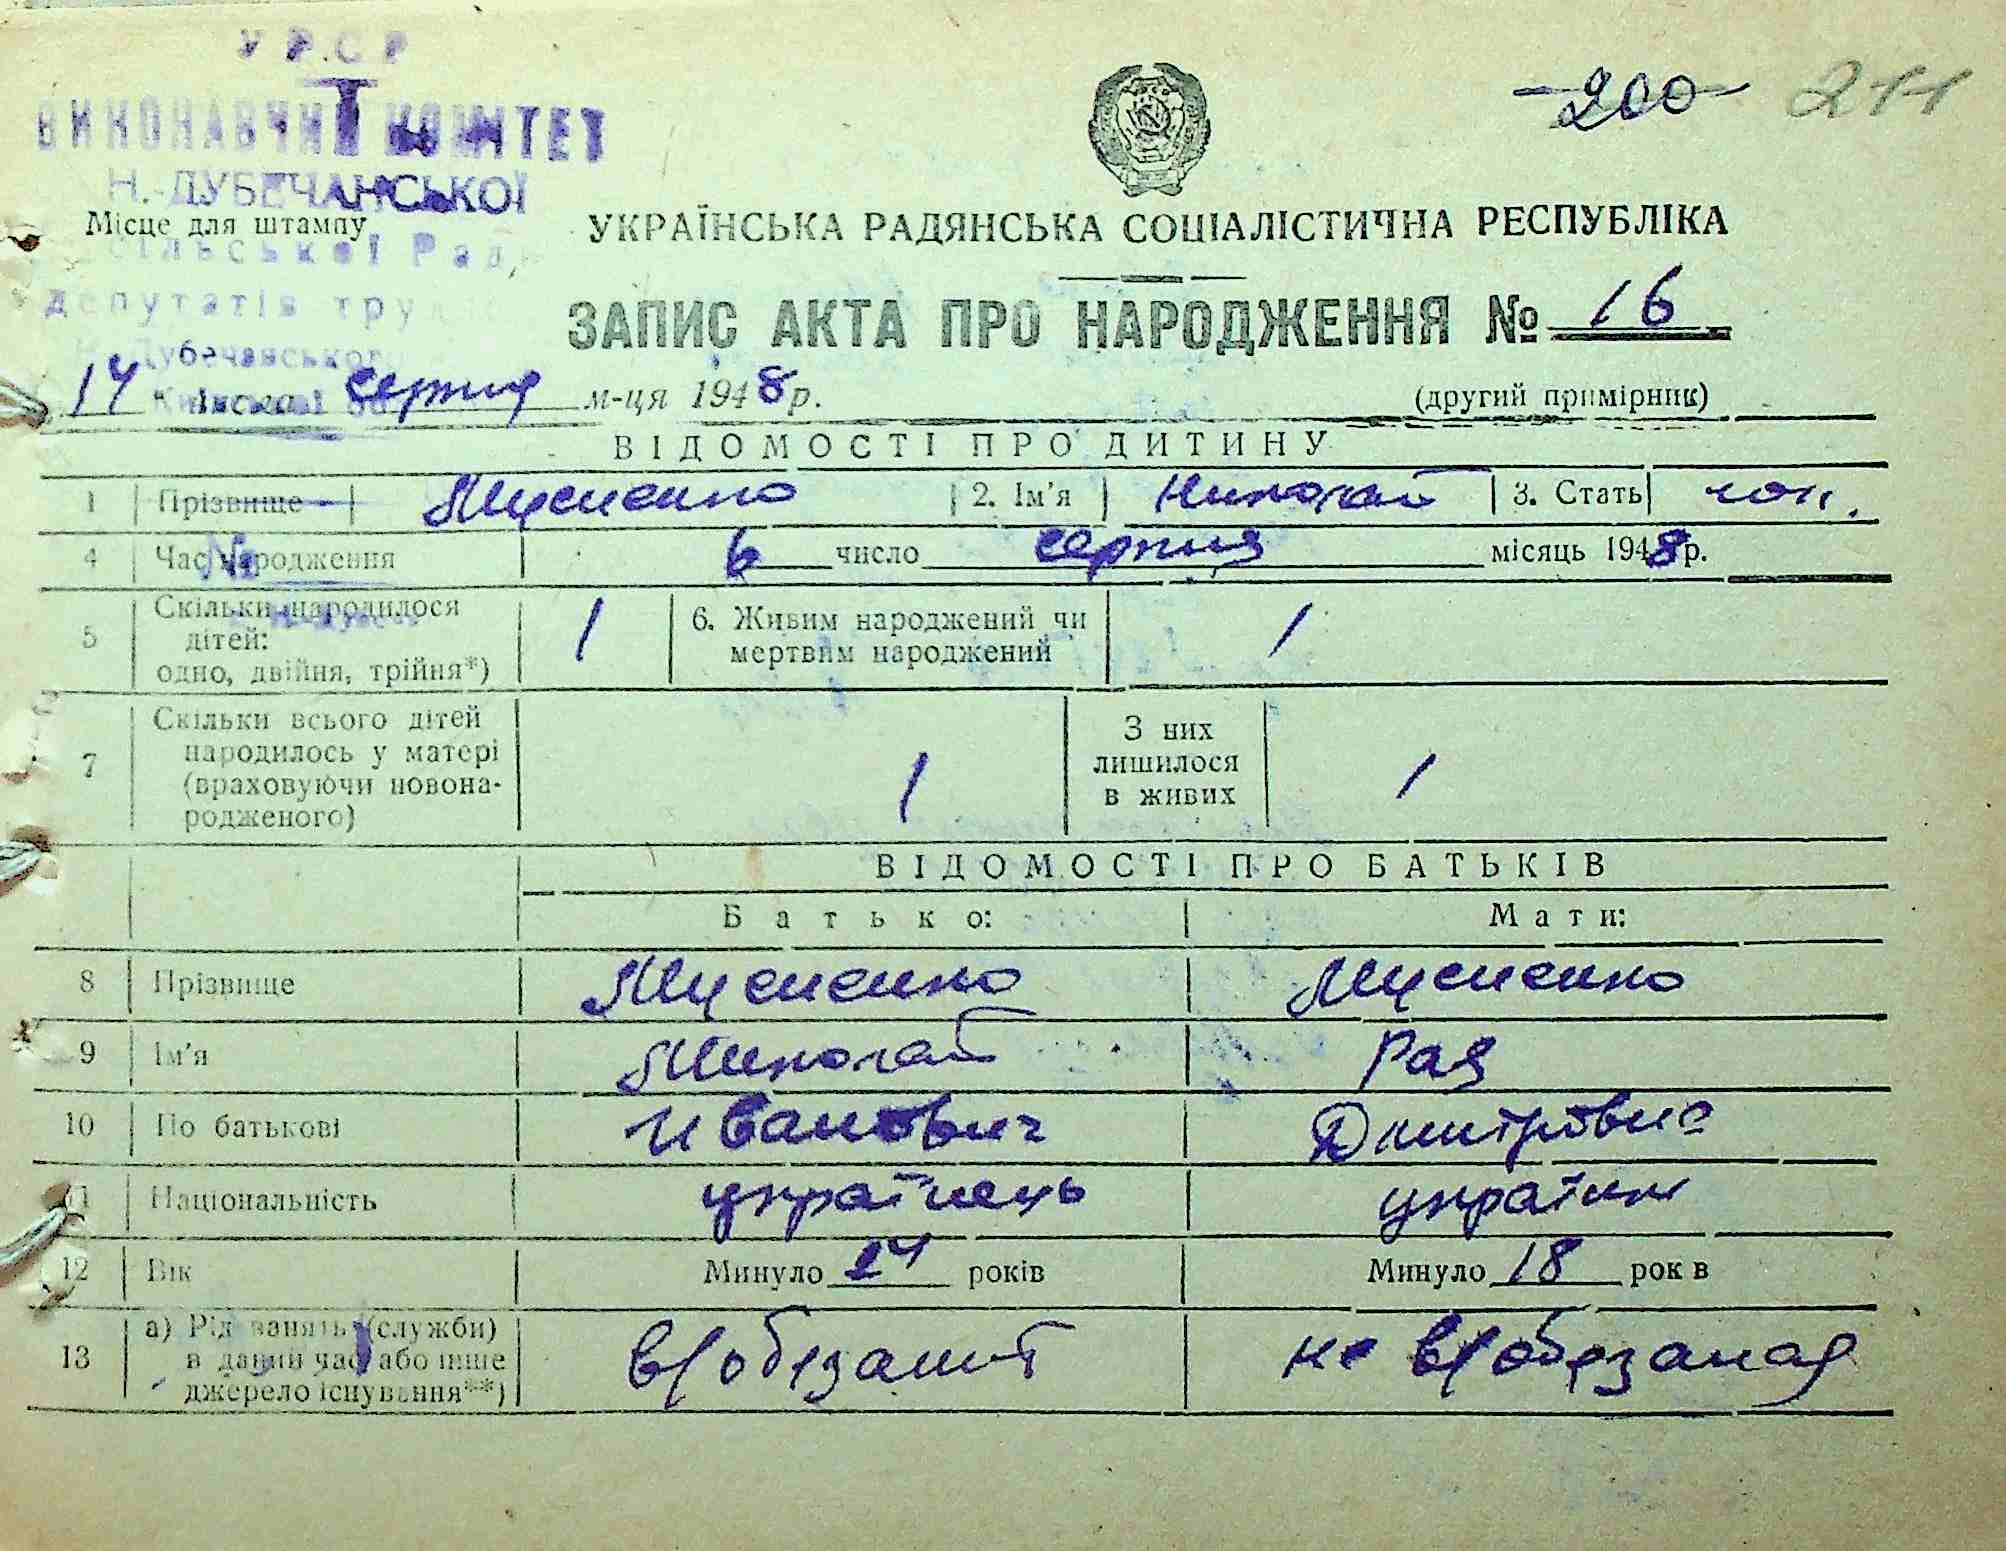 УРСР
ВИКОНАВЧИЙ КОМІТЕТ
Н.-ДУБЕЧАНСЬКОЇ
сільської Рад
депутатів тру
Дубечанського
-200- 211
Місце для штампу
УКРАЇНСЬКА РАДЯНСЬКА СОЦІАЛІСТИЧНА РЕСПУБЛІКА
ЗАПИС АКТА ПРО НАРОДЖЕННЯ № 16
14 серпня м-ця 1948 р.
(другий примірник)
ВІДОМОСТІ ПРО ДИТИНУ
1 Прізвище Мусиенко 2. Ім'я Николай 3. Стать чол.
4 Час народження 6 число серпня місяць 1948 р.
5 Скільки народилося дітей: одно, двійня, трійня*) 1 6. Живим народжений чи мертвим народжений 1
7 Скільки всього дітей народилось у матері (враховуючи новонародженого) 1 З них лишилося в живих 1
ВІДОМОСТІ ПРО БАТЬКІВ
Батько: Мати:
8 Прізвище Мусиенко Мусиенко
9 Ім'я Миколай Рая
10 По батькові Иванович Дмитровна
11 Національність українець українк
12 Вік Минуло 24 років Минуло 18 рок в
13 а) Рід занять (служби) в даний час або інше джерело існування**) в/обязаний не в/обязаная